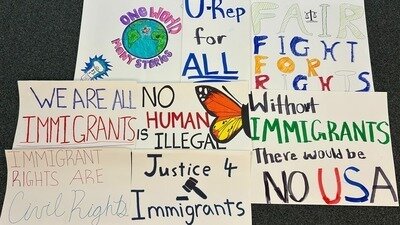 ONE WORLD
MANY STORIES
U-Rep
for
ALL
FAIR
FIGHT
FOR
RIGHTS
WE ARE ALL
IMMIGRANTS
NO
HUMAN
IS ILLEGAL
Without
IMMIGRANTS
There would be
NO USA
IMMIGRANT
RIGHTS ARE
Civil Rights
Justice 4
Immigrants